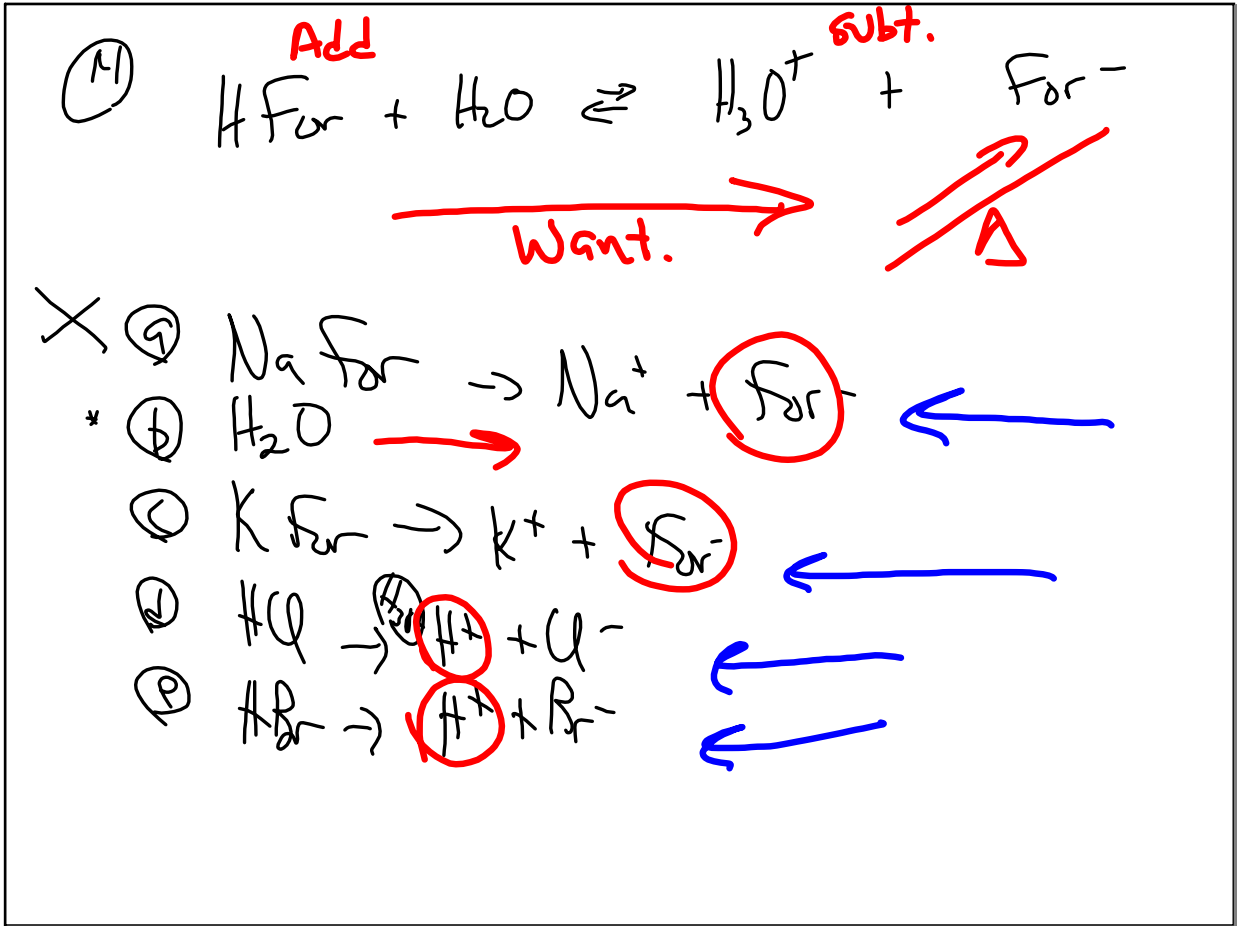 Add subt.
HFor + H₂O ⇌ H₃O⁺ + For⁻
Want. Δ
X ⓐ NaFor → Na⁺ + For⁻
* ⓑ H₂O →
ⓒ KFor → K⁺ + For⁻
ⓓ HCl → H⁺ + Cl⁻
ⓔ HBr → H⁺ + Br⁻